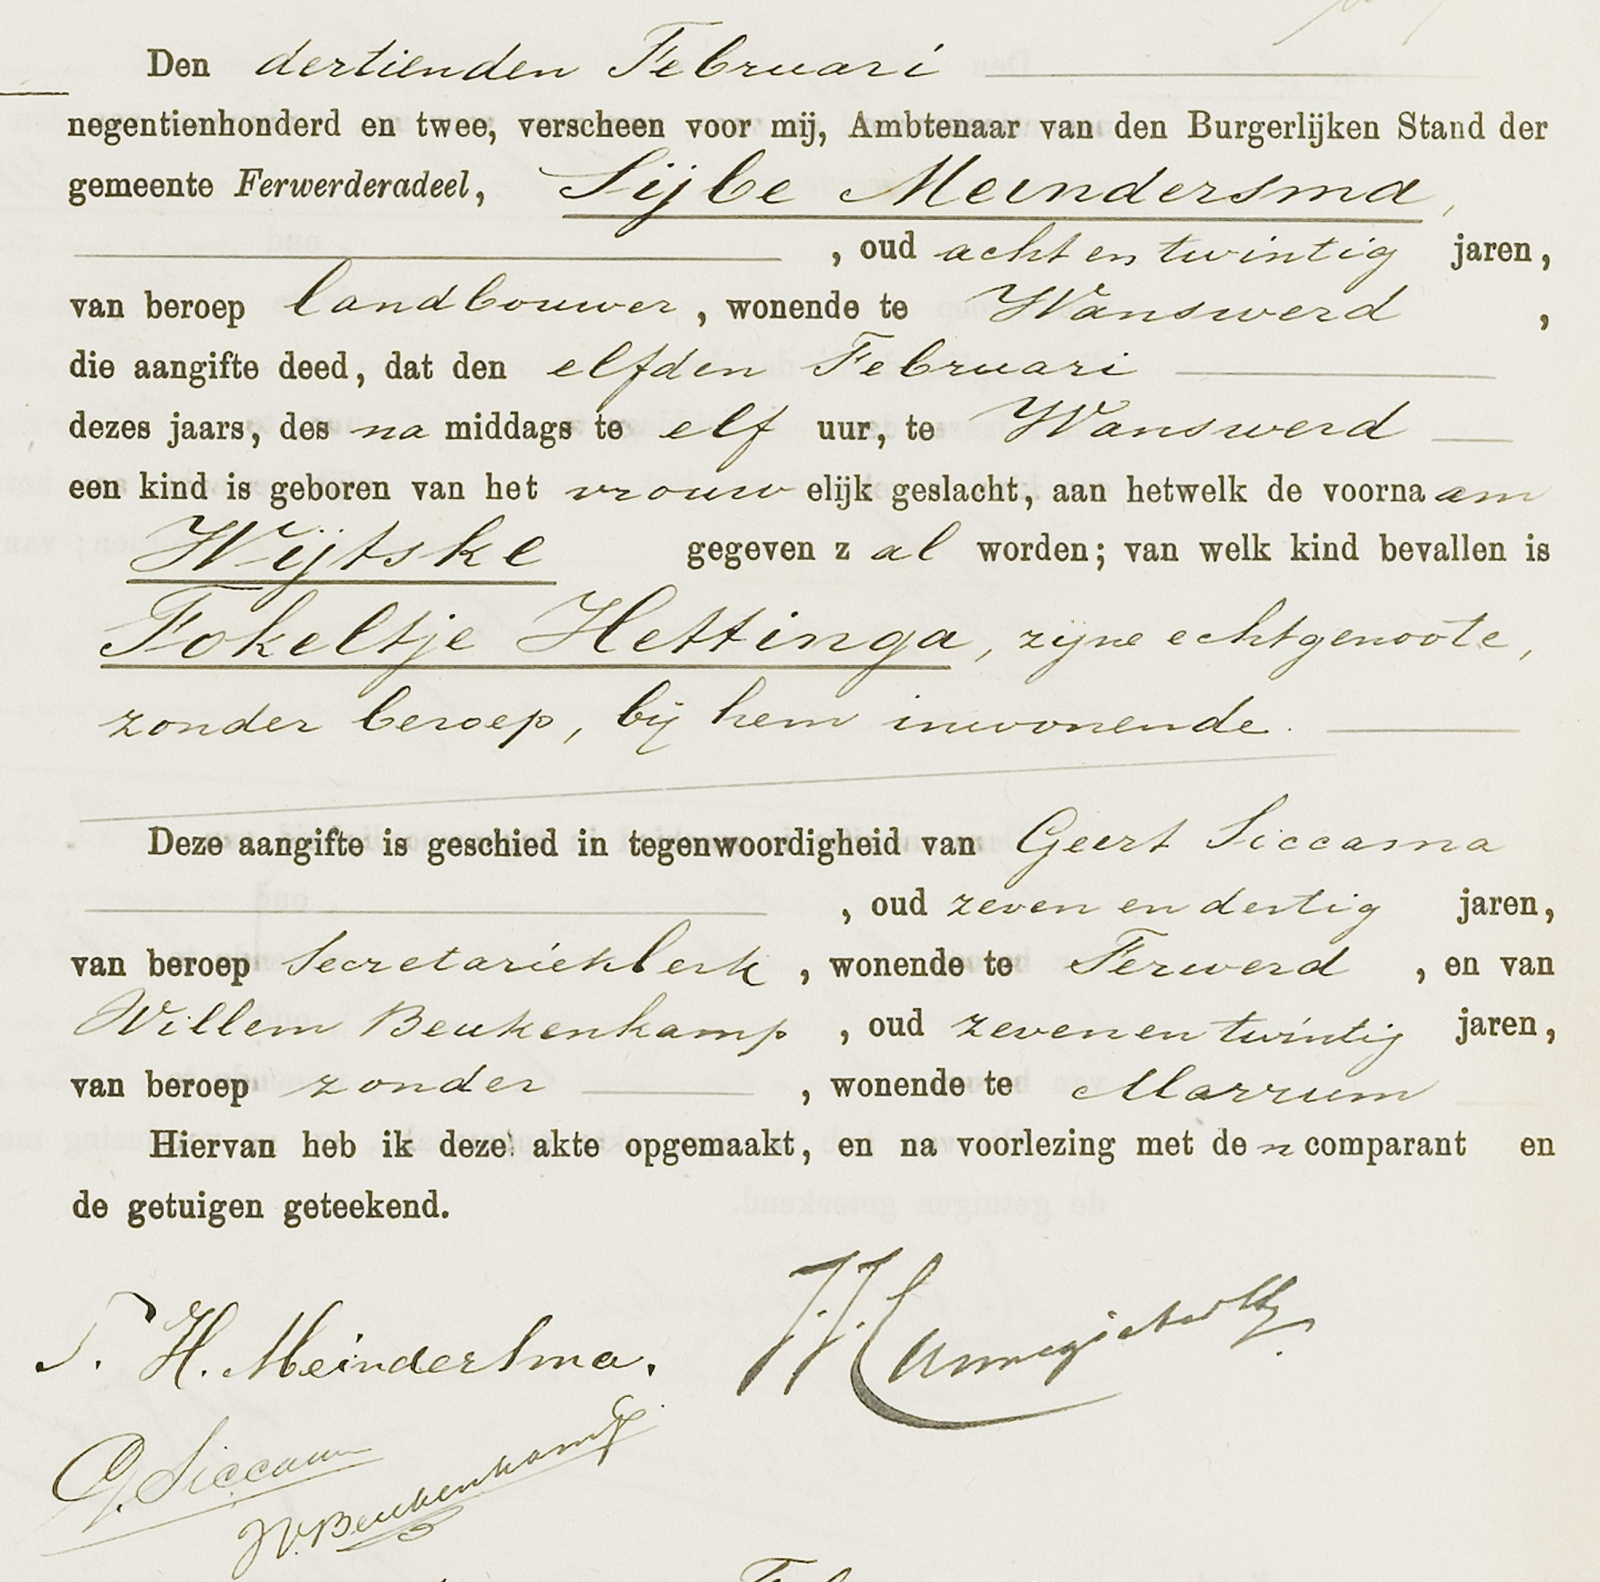 Den dertienden Februari
negentienhonderd en twee, verscheen voor mij, Ambtenaar van den Burgerlijken Stand der
gemeente Ferwerderadeel, Sijbe Meindersma,
, oud acht en twintig jaren,
van beroep landbouwer, wonende te Wanswerd ,
die aangifte deed, dat den elfden Februari
dezes jaars, des na middags te elf uur, te Wanswerd
een kind is geboren van het vrouwelijk geslacht, aan hetwelk de voornaam
Wijtske gegeven zal worden; van welk kind bevallen is
Fokeltje Hettinga, zijne echtgenoote,
zonder beroep, bij hem inwonende.
Deze aangifte is geschied in tegenwoordigheid van Geert Siccama
, oud zeven en dertig jaren,
van beroep Secretarieklerk, wonende te Ferwerd, en van
Willem Beukenkamp, oud zeven en twintig jaren,
van beroep zonder, wonende te Marrum
Hiervan heb ik deze akte opgemaakt, en na voorlezing met den comparant en
de getuigen geteekend.
S. H. Meindersma.
G. Siccama
W. Beukenkamp